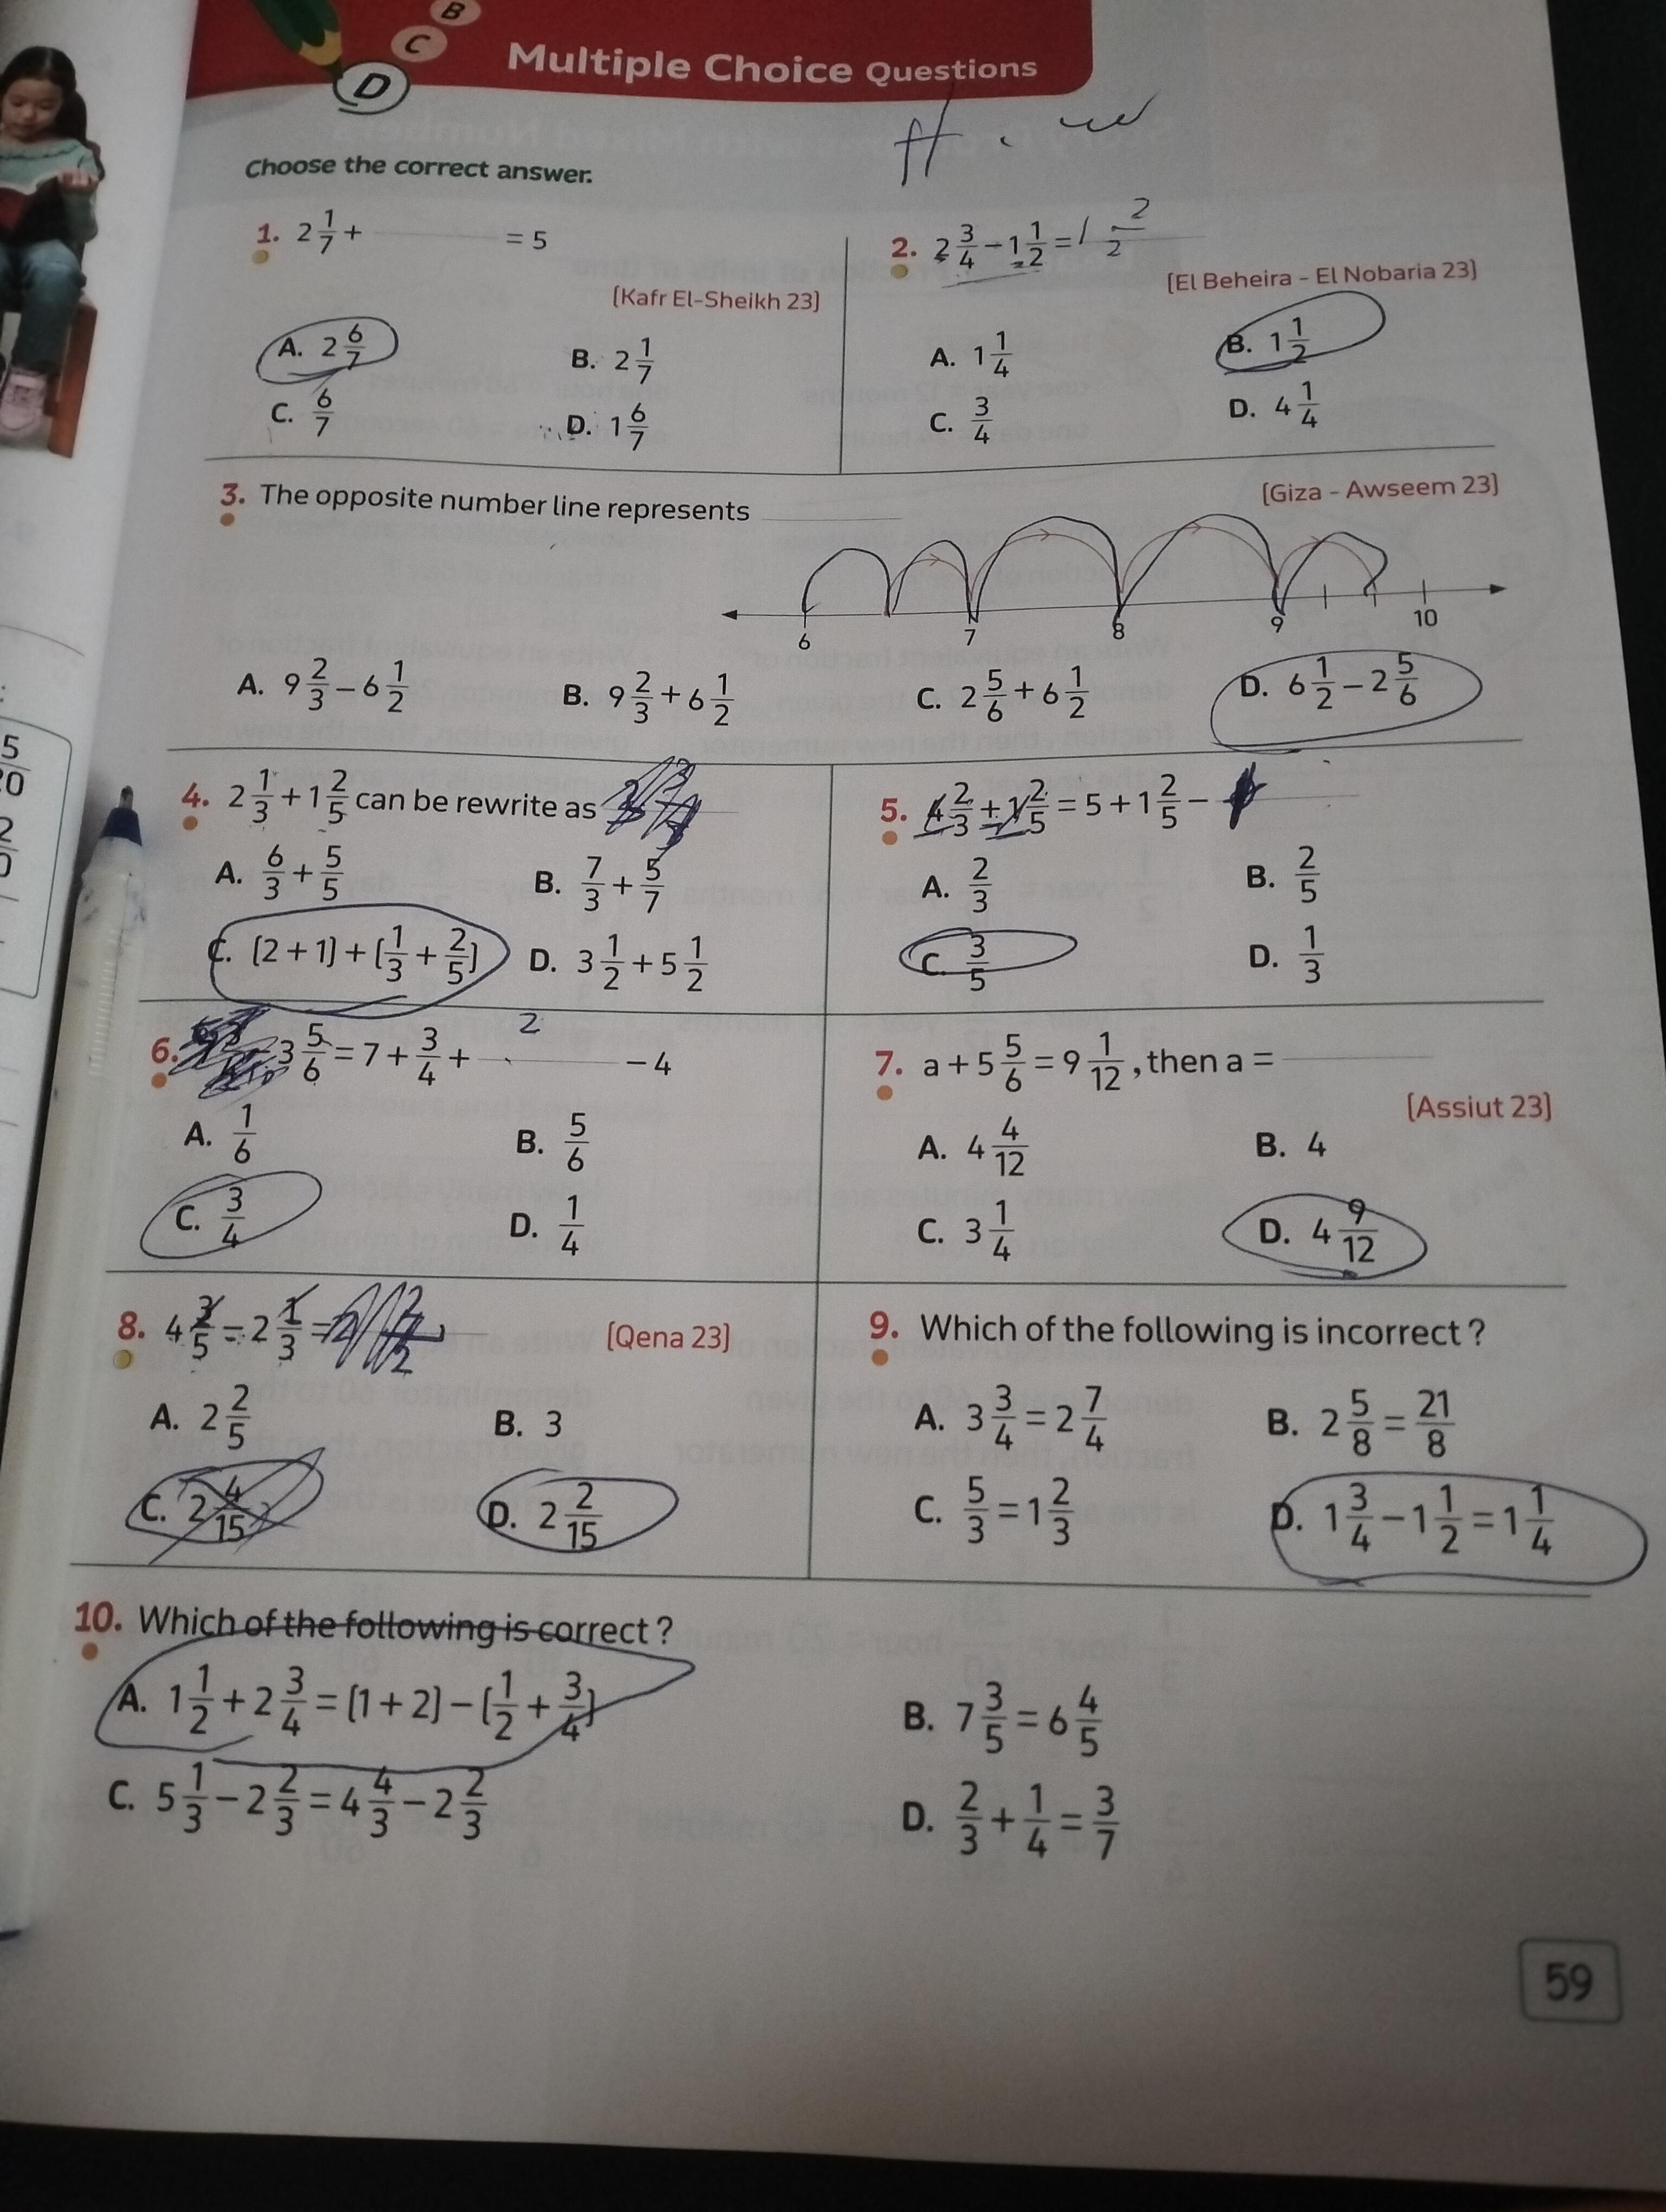 B
C
D
Multiple Choice Questions
Choose the correct answer.
1. 2 1/7 + = 5
[Kafr El-Sheikh 23]
A. 2 6/7
B. 2 1/7
C. 6/7
D. 1 6/7
2. 2 3/4 - 1 1/2 = 1 2/2
[El Beheira - El Nobaria 23]
A. 1 1/4
B. 1 1/2
C. 3/4
D. 4 1/4
3. The opposite number line represents
[Giza - Awseem 23]
6 7 8 9 10
A. 9 2/3 - 6 1/2
B. 9 2/3 + 6 1/2
C. 2 5/6 + 6 1/2
D. 6 1/2 - 2 5/6
4. 2 1/3 + 1 2/5 can be rewrite as
A. 6/3 + 5/5
B. 7/3 + 5/7
C. (2 + 1) + (1/3 + 2/5)
D. 3 1/2 + 5 1/2
5. 4 2/3 + 1 2/5 = 5 + 1 2/5 -
A. 2/3
B. 2/5
C. 3/5
D. 1/3
6. - 3 5/6 = 7 + 3/4 + 2 - 4
A. 1/6
B. 5/6
C. 3/4
D. 1/4
7. a + 5 5/6 = 9 1/12, then a =
[Assiut 23]
A. 4 4/12
B. 4
C. 3 1/4
D. 4 9/12
8. 4 2/5 - 2 1/3 =
[Qena 23]
A. 2 2/5
B. 3
C. 2 4/15
D. 2 2/15
9. Which of the following is incorrect ?
A. 3 3/4 = 2 7/4
B. 2 5/8 = 21/8
C. 5/3 = 1 2/3
D. 1 3/4 - 1 1/2 = 1 1/4
10. Which of the following is correct ?
A. 1 1/2 + 2 3/4 = (1 + 2) - (1/2 + 3/4)
B. 7 3/5 = 6 4/5
C. 5 1/3 - 2 2/3 = 4 4/3 - 2 2/3
D. 2/3 + 1/4 = 3/7
59